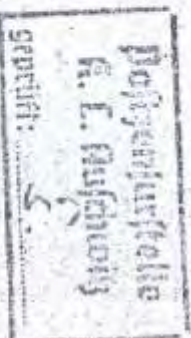 Postzensurstelle
K. L. Auschwitz
geprüft: 5